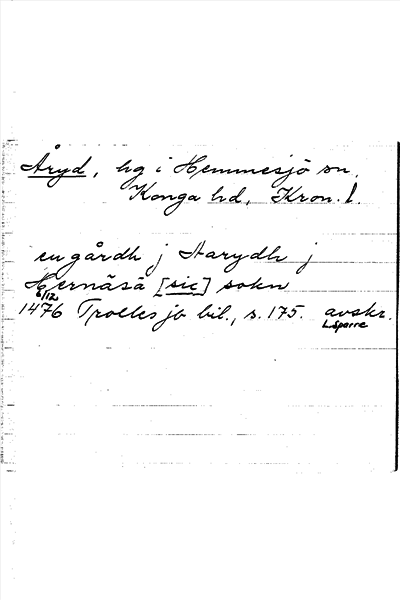 Åryd, hg i Hemmesjö sn,
Konga hd, Kron. l.
en gårdh j Aarydh j
Hernäsä [sic] sokn
6/12
1476 Trolles jb bil., s. 175. avskr.
L Sparre